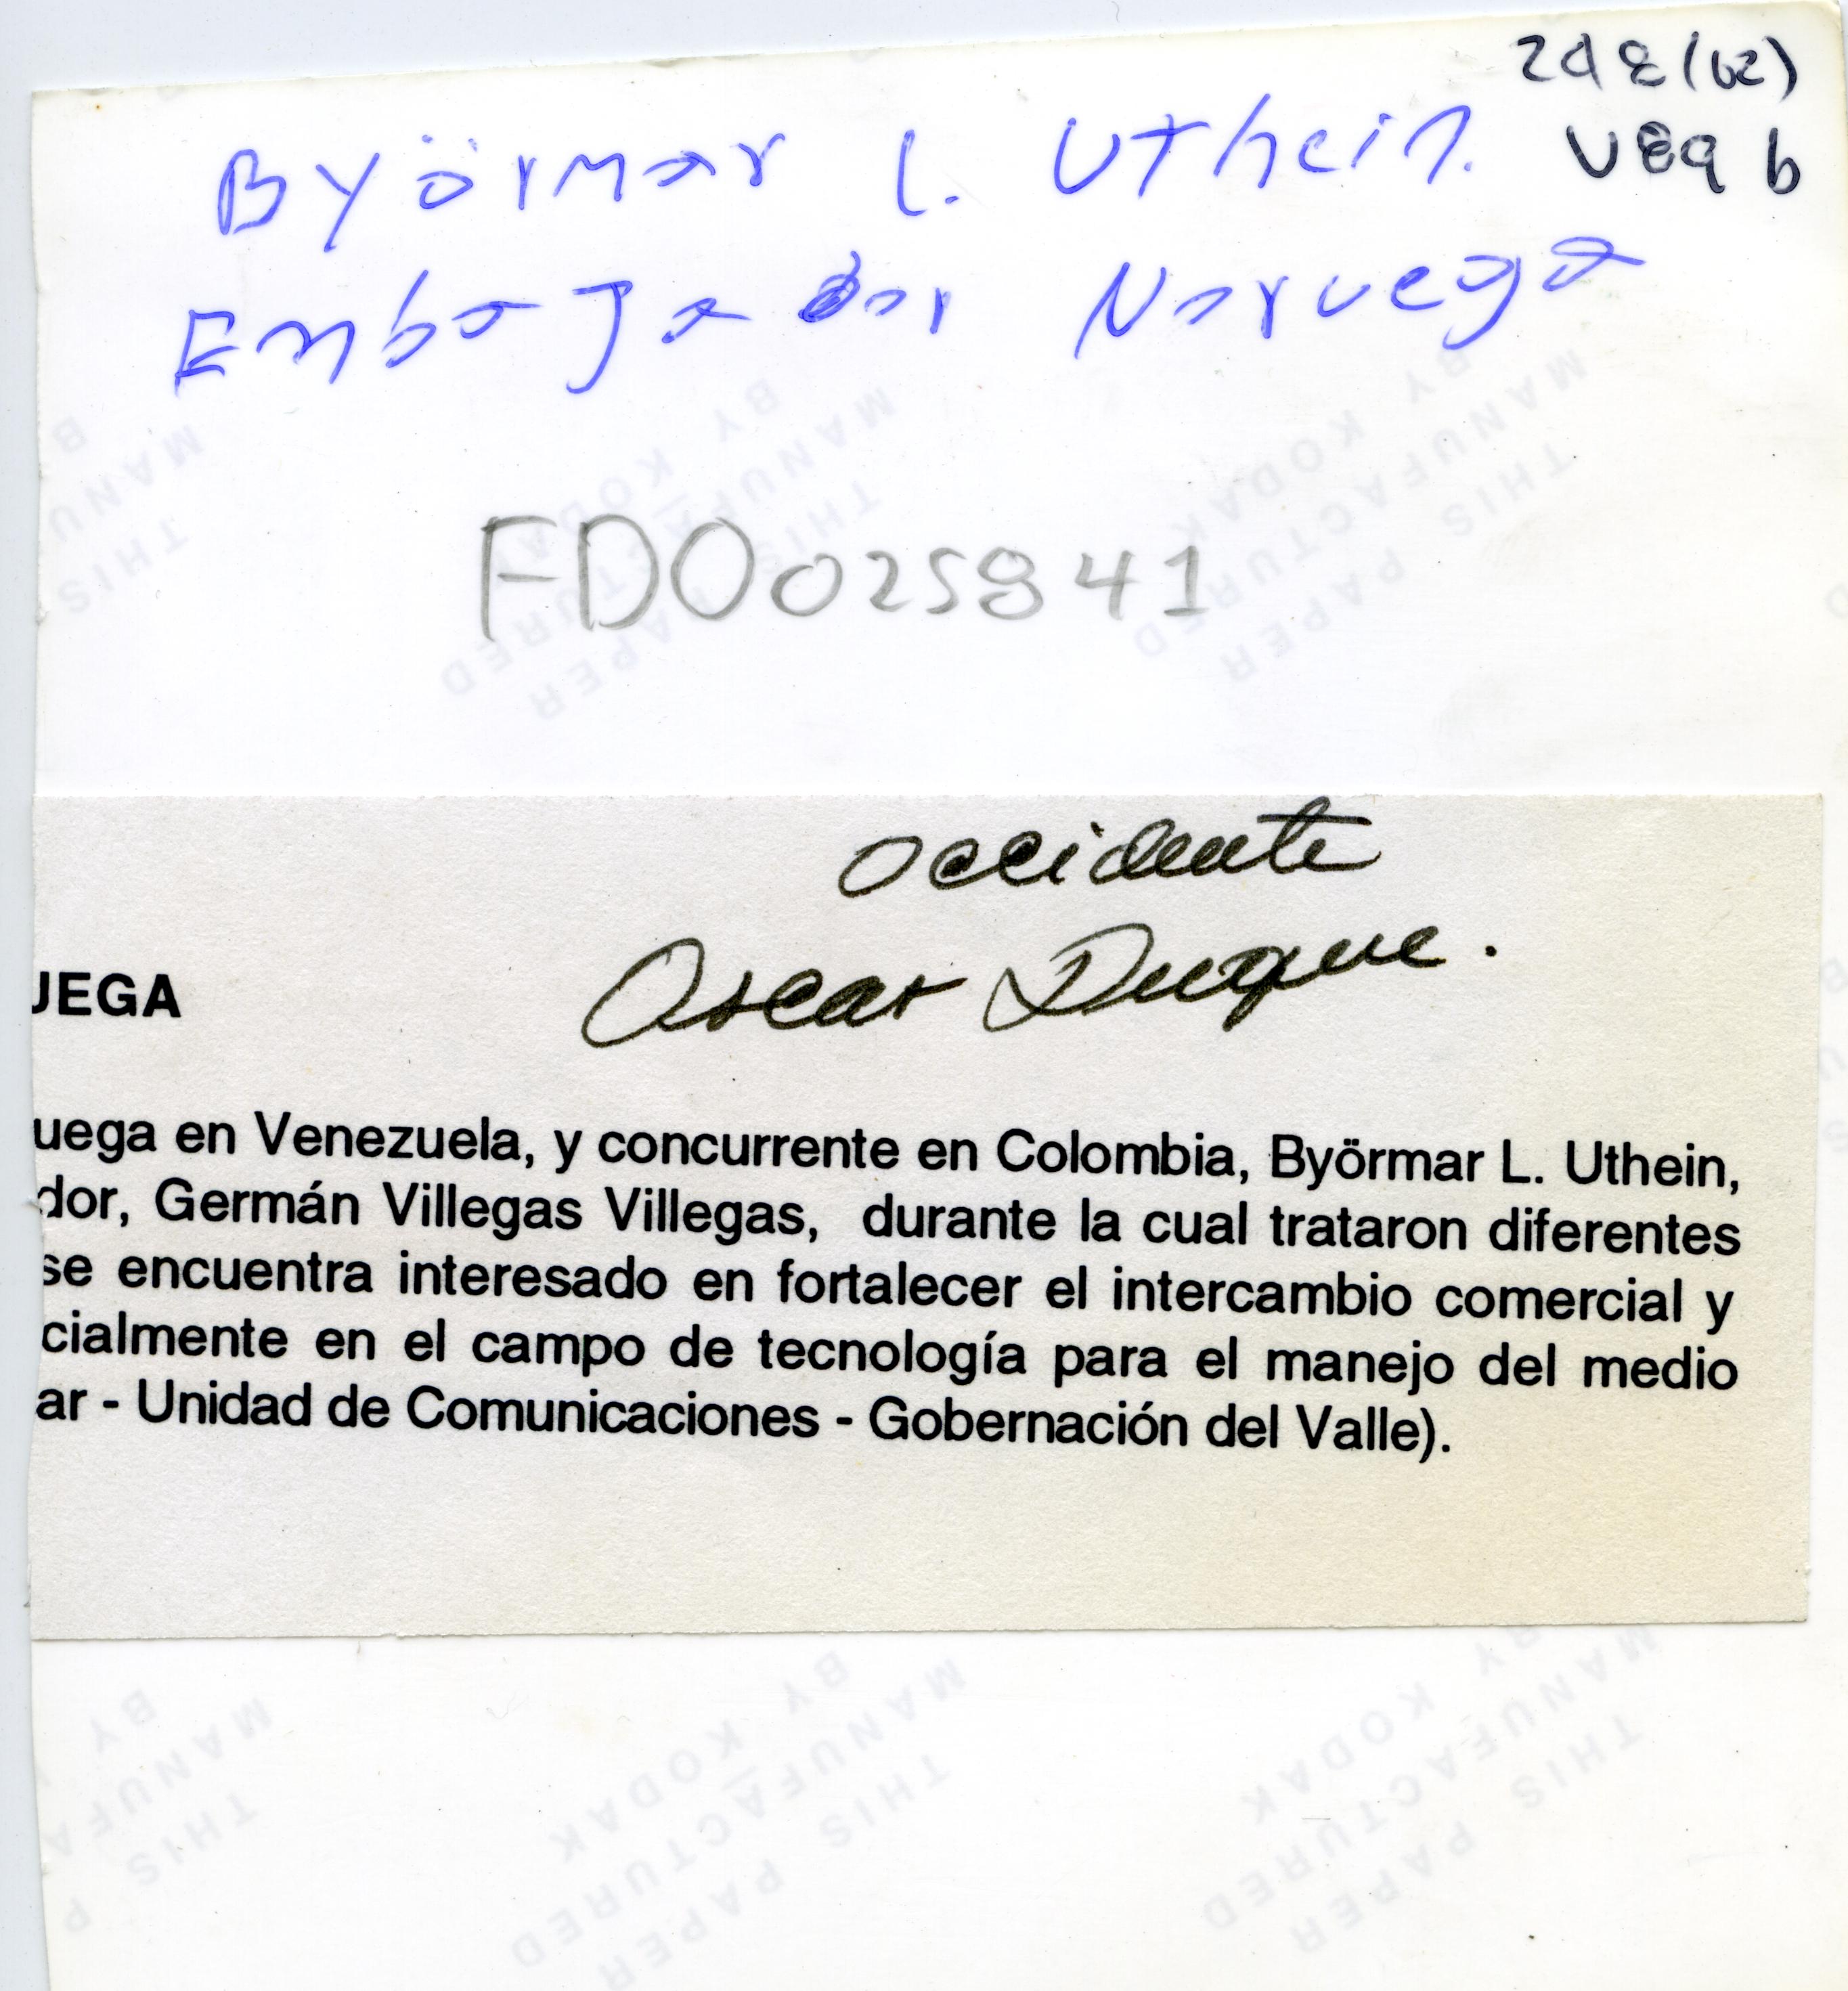 298(62)
Byörmar L. Uthein. U89 b
Embajador Noruega
FD0025841
Occidente
Oscar Duque.
UEGA
uega en Venezuela, y concurrente en Colombia, Byörmar L. Uthein,
dor, Germán Villegas Villegas, durante la cual trataron diferentes
se encuentra interesado en fortalecer el intercambio comercial y
cialmente en el campo de tecnología para el manejo del medio
ar - Unidad de Comunicaciones - Gobernación del Valle).
THIS PAPER
MANUFACTURED
BY KODAK